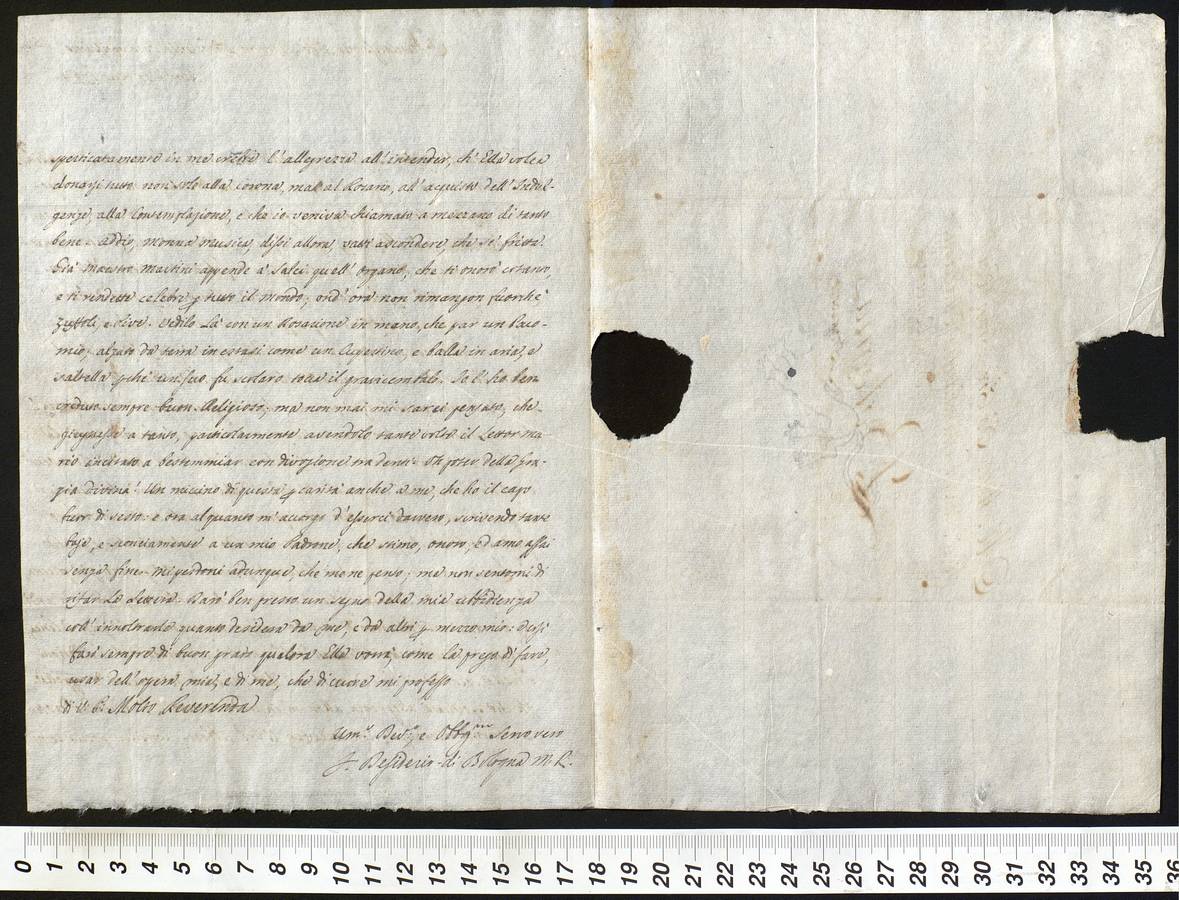 sperticatamente in me crebbe l'allegrezza all'intender, ch'Ella volea
donarsi tutto non solo alla Corona, ma al Rosario, all'acquisto dell'Indul-
genze, alla Contemplazione, e che io veniva chiamato a mezzano di tanto
bene. addio, monna musica, dissi allora, vatti ascondere, che se' fritta.
Già maestro Martini appende a' Salci quell'organo, che ti onorò cotanto,
e ti rendette celebre p tutto il mondo; ond'ora non rimangon fuorchè
Zuffoli, e Pive. Vedilo là con un Rosarione in mano, che par un Paco-
mio, alzato da terra in estasi come un Cupertino, e balla in aria, e
saltella pchè un suo fu scolaro tocca il gravicembalo. Io l'ho ben
creduto sempre buon Religioso; ma non mai mi sarei pensato, che
giugnesse a tanto, particolarmente avendolo tante volte il Lettor Ma-
rio incitato a bestemmiar con divozione tra denti. Oh poter della Gra-
zia divina! Un micino di questa p carità anche a me, che ho il capo
fuor di sesto: e ora alquanto m'accorgo d'esserci davvero, scrivendo tante
baje, e sconciamente a un mio Padrone, che stimo, onoro, ed amo assai
senza fine. Mi perdoni adunque, che me ne pento; me non sentomi di
rifar la Lettera. Darò ben presto un segno della mia ubbidienza
coll'innoltrarle quanto desidera da me, e da altri p mezzo mio: e così
farò sempre di buon grado qualora Ella vorrà, come la prego di fare,
usar dell'opera mia, e di me, che di cuore mi professo
di V. P. Molto Reverenda
Um.º Dev.º, e Obbgmo Servo vero
F. Desiderio di Bologna M. R.